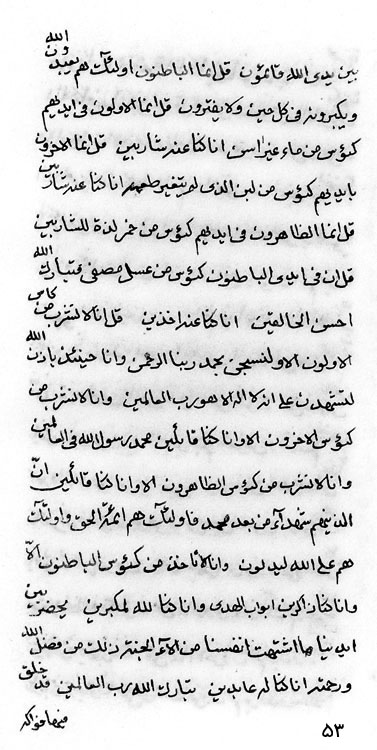 بين يدى الله قائمون قل انما الباطنون اولئك هم يعبدون الله
ويكبرون فى كل حين ولا يفترون قل انما الاولون فى ايديهم
كؤس من ماء غير اسن انا كنا عند شاربين قل انما الاخرون
بايديهم كؤس من لبن الذى لم يتغير طعمه انا كنا عند شاربين
قل انما الظاهرون فى ايديهم كؤس من خمر لذة للشاربين
قل ان فى ايدى الباطنون كؤس من عسل مصفى فتبارك الله
احسن الخالقين انا كنا عند اخذين قل انا لانشرب من كاس
الاولون الا ولنسبحن بحمد ربنا الرحمن وانا حينئذ باذن الله
لتشهدن على انه لا اله الا هو رب العالمين وانا لانشرب من
كؤس الاخرون الا وانا كنا قائلين محمد رسول الله فى العالمين
وانا لانشرب من كؤس الظاهرون الا وانا كنا قائلين ان
الذينهم شهدآء من بعد محمد فاولئك هم ائمة الحق واولئك
هم على الله ليدلون وانا لاناخذ من كؤس الباطنون الا
وانا كنا ذاكرين ابواب الهدى وانا كنا لله لمكبرين يحضر بين
ايدينا ما اشتهت انفسنا من الاء الجنة ذلك من فضل الله
ورحمته انا كنا له عابدين تبارك الله رب العالمين قد خلق
فيها فواكه
٥٣